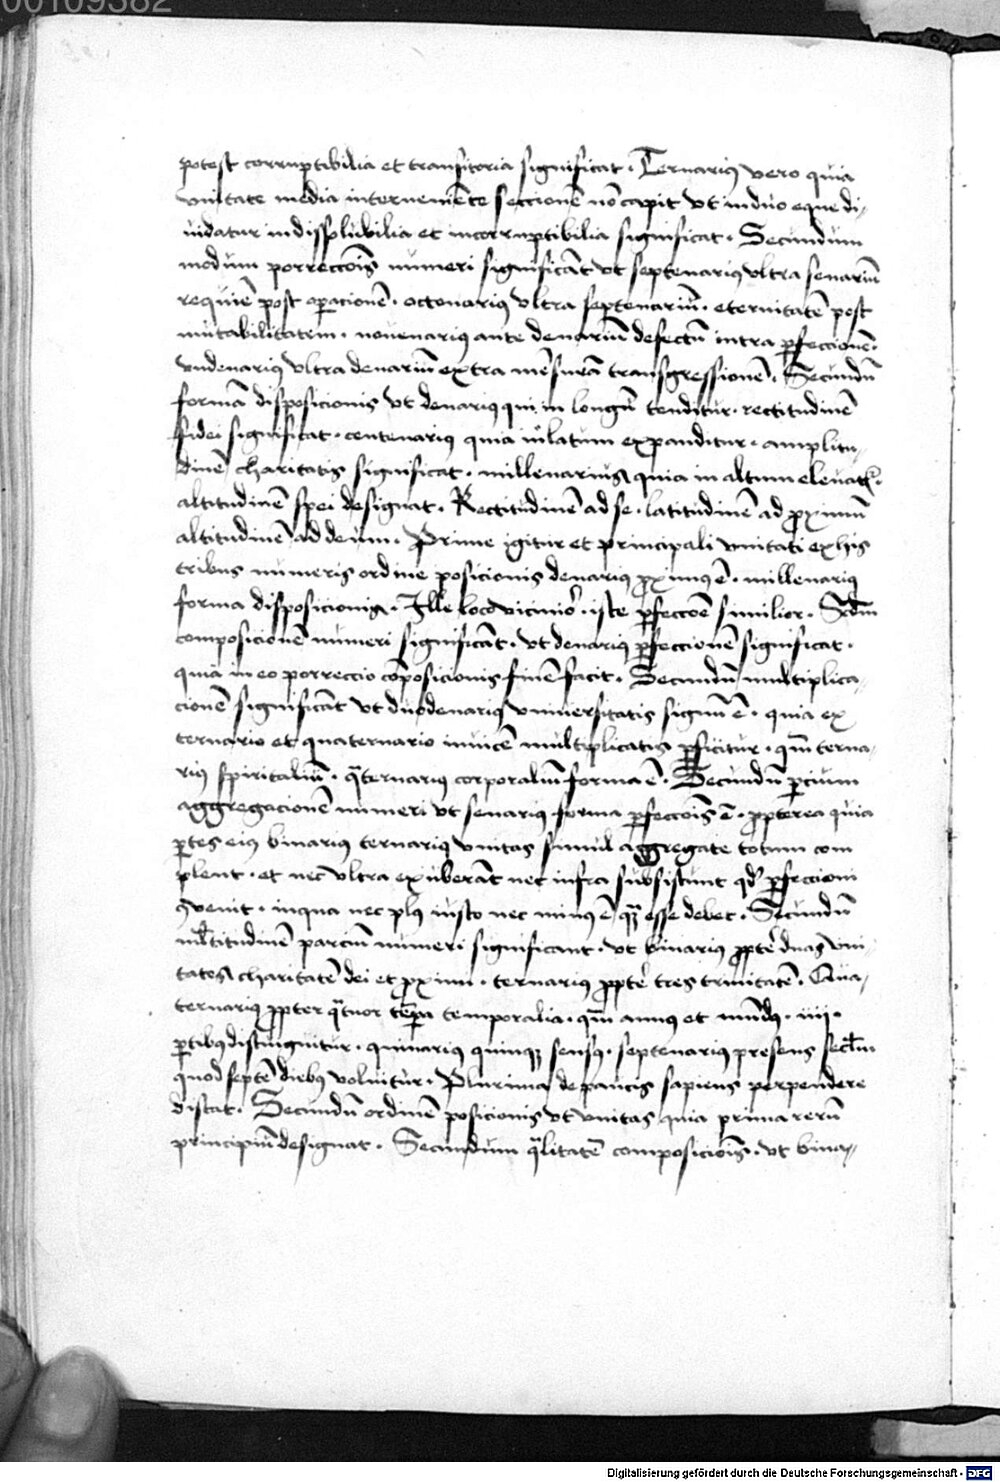 00109382
potest corruptibilia et transitoria significat · Ternariꝰ vero quia
vnitate media interueniēte seccionē nō capit vt in duo eque di-
uidatur indissolubilia et incorruptibilia significat · Secundum
modum porreccōis numeri significāt vt septenariꝰ vltra senariū
requiē post oꝑacionē · octenariꝰ vltra septenariū · eternitatē post
mutabilitatem · nouenariꝰ ante denariū defectū intra ꝑfeccionē ·
vndenariꝰ vltra denariū extra mēsurā transgressionē · Secundū
formā disposicionis vt denariꝰ qui in longū tenditur · rectitudinē
fidei significat · centenariꝰ quia in latum expanditur · amplitu-
dinē charitatis significat · millenarius quia in altum eleuatᷣ ·
altitudinē spei designat · Rectitudinē ad se · latitudinē ad ꝓximū
altitudinē ad deum · Prime igitur et principali vnitati ex his
tribus numeris ordine posicionis denariꝰ ꝓximꝰ ē · millenariꝰ
forma disposicionis · Ille loco vicinioᷣ · iste ꝑfeccōe similior · Scdm̄
composicionē numeri significāt · vt denariꝰ ꝑfeccionē significat ·
quia in eo porreccio cōposicionis finē facit · Secundū multiplica-
cionē significāt vt duodenariꝰ vniuersitatis signū ē · quia ex
ternario et quaternario inuicē multiplicatis ꝑficitur · qm̄ terna-
riꝰ spiritaliū · qᷓternariꝰ corporaliū forma ē · Secundū ꝑcium
aggregacionē numeri vt senariꝰ forma ꝑfeccōis ē · ꝓpterea quia
ꝑtes eiꝰ binariꝰ ternariꝰ vnitas simul aggregate totum com
plent · et nec vltra exuberāt nec infra subsistunt qd' ꝑfeccioni
ꝯuenit · in qua nec plꝰ iusto nec minꝰ ē qꝫ esse debet · Secundū
ml'titudinē parciū numeri significant · vt binariꝰ ꝓpt' duas vni-
tates charitatē dei et ꝓximi · ternariꝰ ꝓpt' tres trinitatē · Qua-
ternariꝰ ꝓpter qᷓtuor tēpora temporalia · qm̄ annus et mūdꝰ · iiii ·
ꝑtibꝰ distinguitur · quinariꝰ quinqꝫ sensꝰ · septenariꝰ presens secl'm
quod septē diebꝰ voluitur · Plurima de paucis sapiens perpendere
discat · Secundū ordinē posicionis vt vnitas quia prima rerū
principiū designat · Secundum qᷓlitatē composiciōis · vt bina-
Digitalisierung gefördert durch die Deutsche Forschungsgemeinschaft - DFG